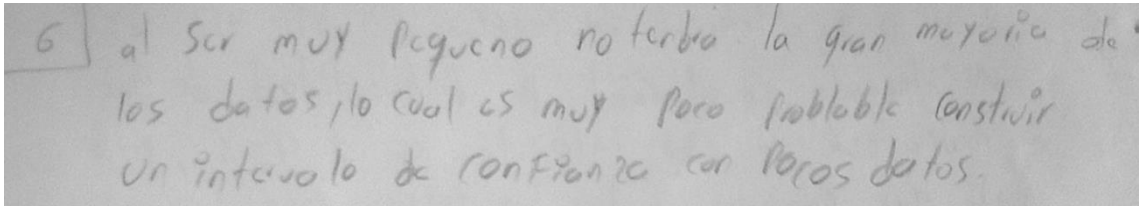 6 al ser muy pequeno no tendra la gran mayoria de
los datos, lo cual es muy poco problable construir
un intervalo de confianza con pocos datos.